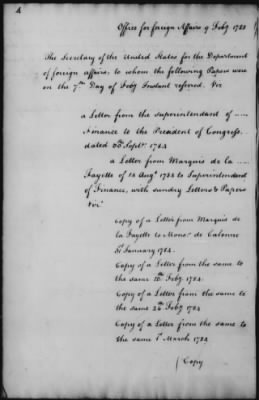 4
Office for foreign Affairs 9 Feby 1785
The Secretary of the United States for the Department
of foreign affairs, to whom the following Papers were
on the 7th Day of Feby Instant referred. Viz
a Letter from the superintendant of
Finance to the President of Congress,
dated Septr 1784
a Letter from Marquis de la
Fayette of Augt 1784 to Superintendant
of Finance, with sundry Letters & Papers
Viz
Copy of a Letter from Marquis de
la Fayette to Monsr de Calonne
January 1784.
Copy of a Letter from the same to
the same Feby 1784.
Copy of a Letter from the same to
the same 26th Feby 1784
Copy of a Letter from the same to
the same 1st March 1784
Copy